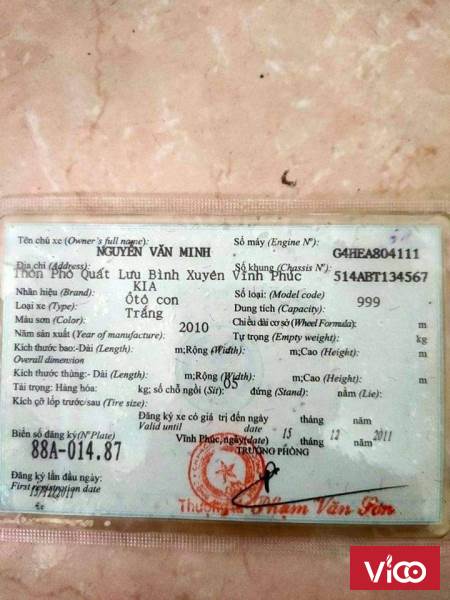 Tên chủ xe (Owner's full name): NGUYỄN VĂN MINH Số máy (Engine Nº): G4HEA804111
Địa chỉ (Address): Thôn Phổ Quất Lưu Bình Xuyên Vĩnh Phúc Số khung (Chassis Nº): 514ABT134567
Nhãn hiệu (Brand): KIA Số loại: (Model code) 999
Loại xe (Type): Ôtô con Dung tích (Capacity): m
Màu sơn (Color): Trắng Chiều dài cơ sở (Wheel Formula): m
Năm sản xuất (Year of manufacture): 2010 Tự trọng (Empty weight): kg
Kích thước bao:-Dài (Length): m;Rộng (Width): m;Cao (Height): m
Overall dimension
Kích thước thùng:-Dài (Length): m;Rộng (Width): m;Cao (Height): m
Tải trọng: Hàng hóa: kg; số chỗ ngồi (Sit): 05 đứng (Stand): nằm (Lie):
Kích cỡ lốp trước/sau (Tire size):
Đăng ký xe có giá trị đến ngày tháng năm
Valid until date
Biển số đăng ký(Nº Plate) Vĩnh Phúc, ngày(date) 15 tháng 12 năm 2011
88A-014.87 TRƯỞNG PHÒNG
Đăng ký lần đầu ngày:
First registration date
15/12/2011
Thượng tá Phạm Văn Sơn
ViCO